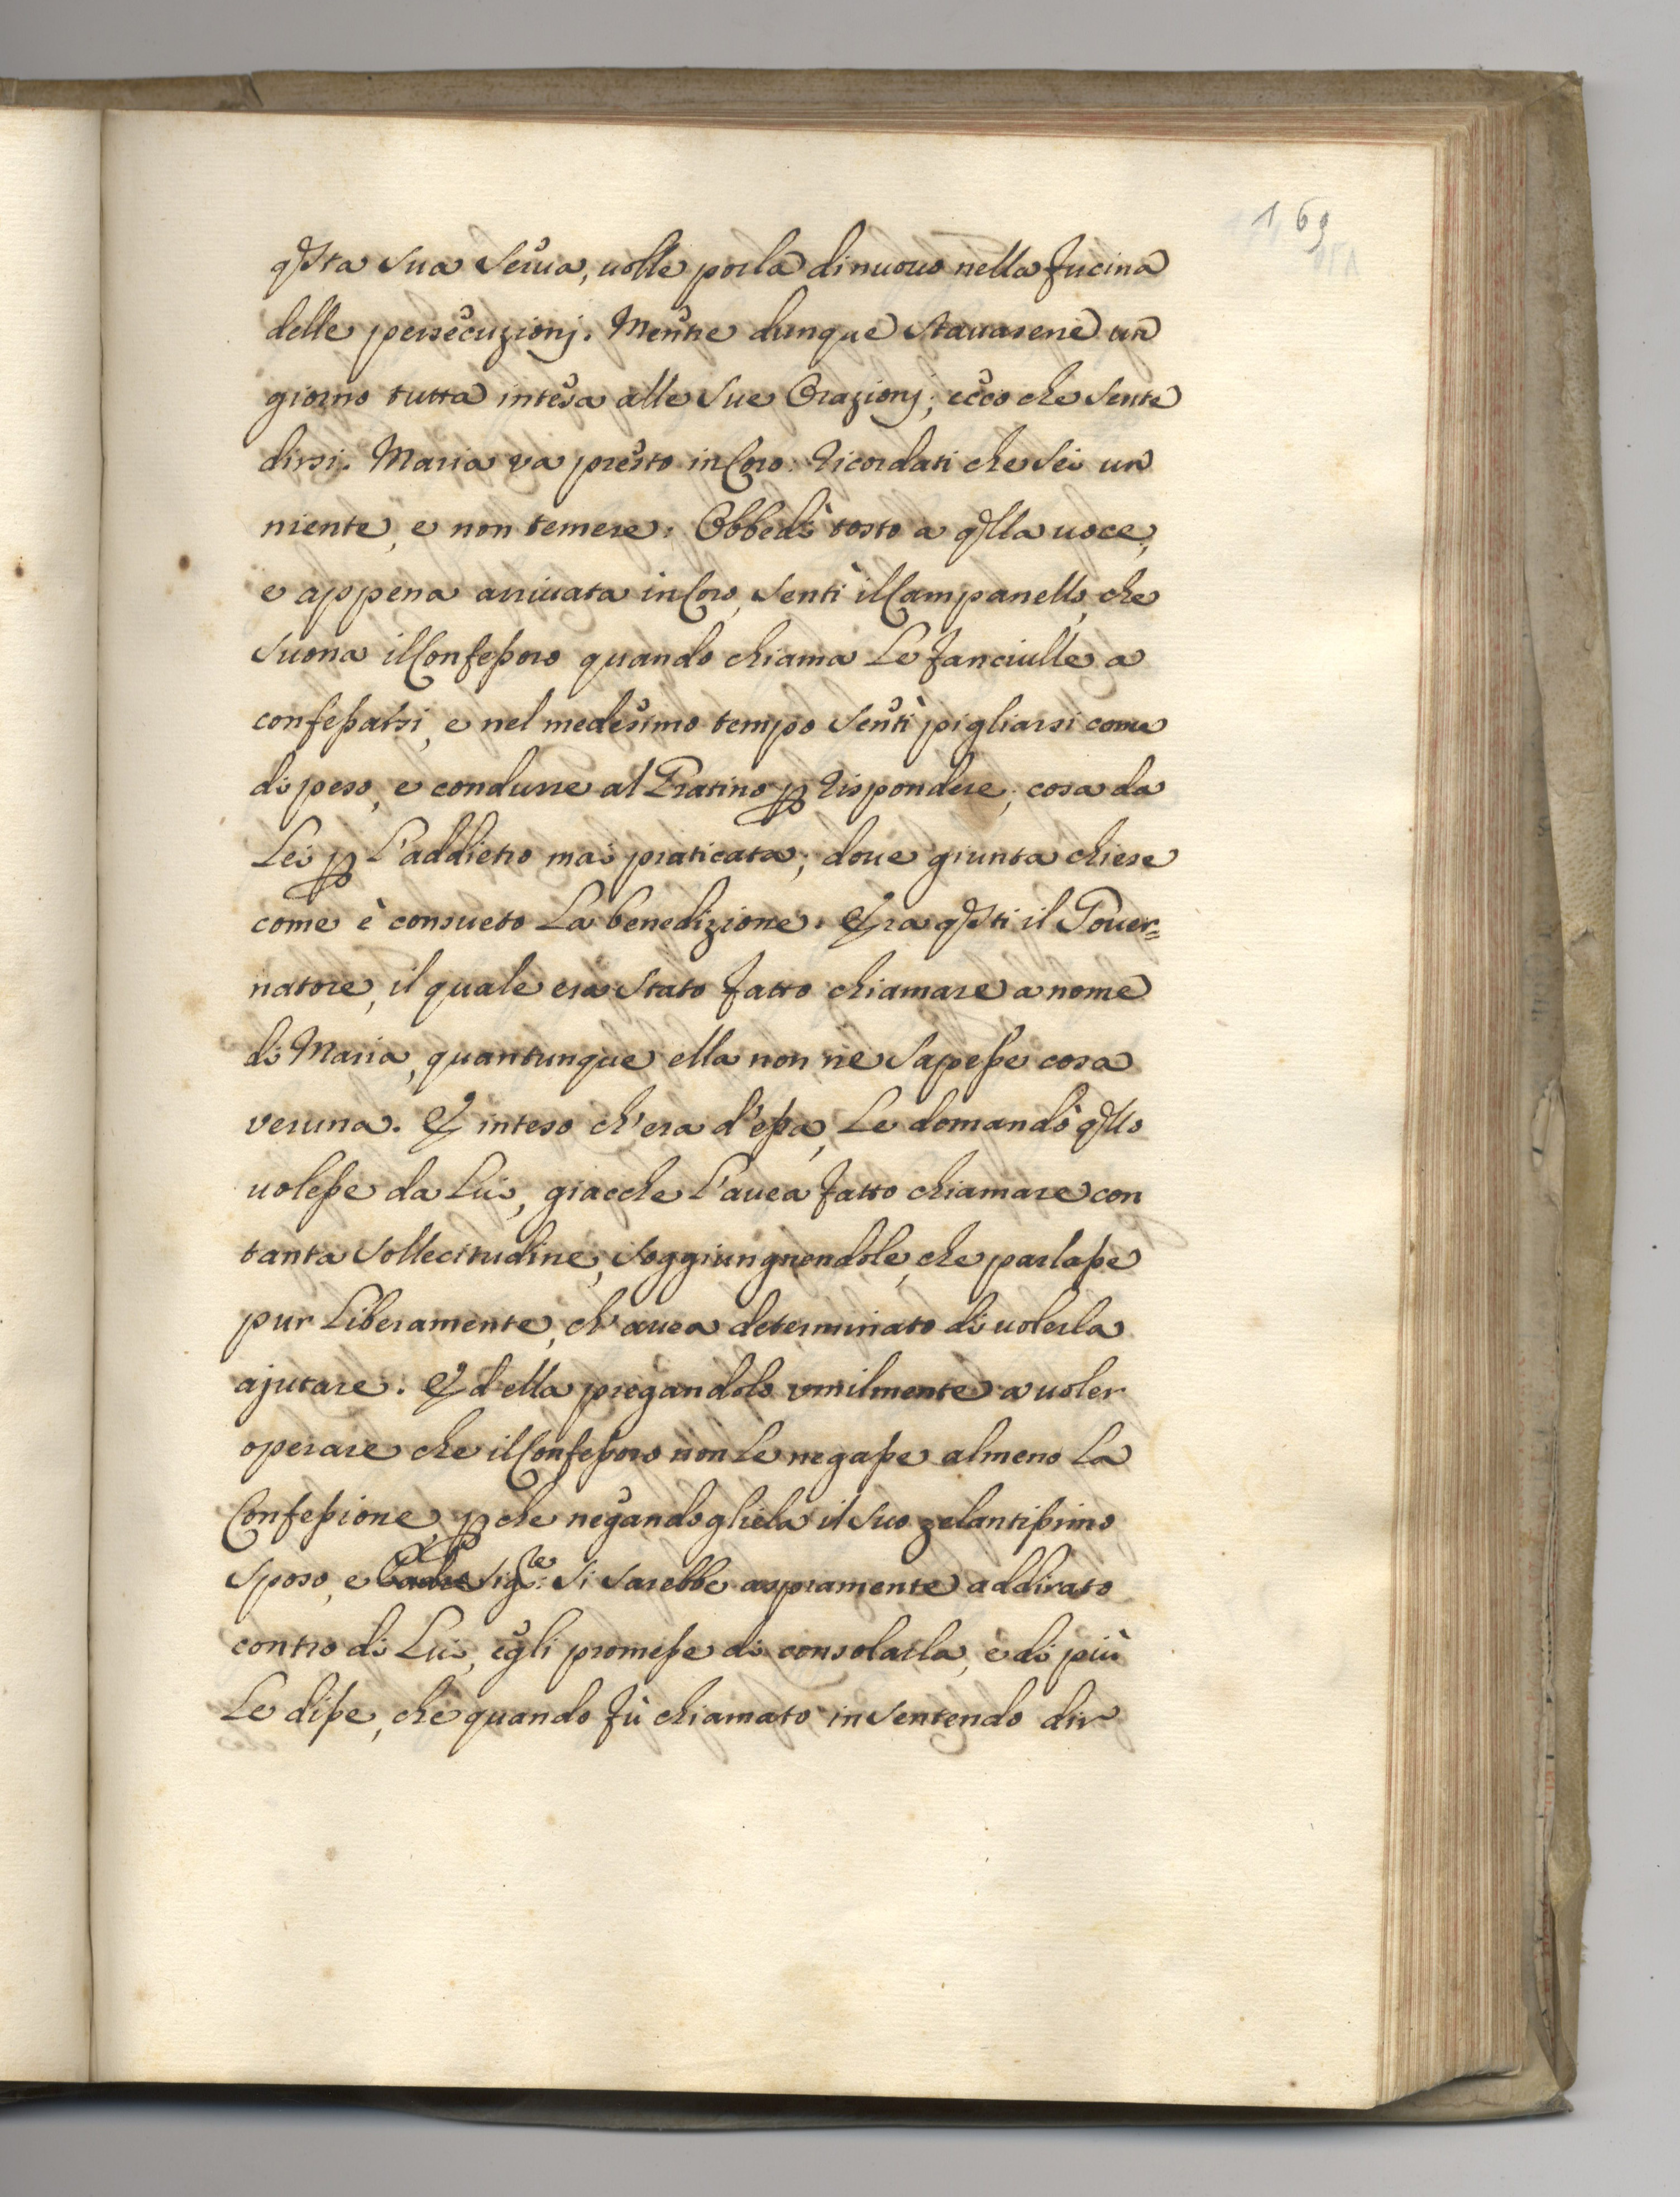 169
qsta sua serua, uolle porla di nuouo nella fucina
delle persecuzionj. Mentre dunque stauasene un
giorno tutta intesa alle sue Orazionj; ecco che sente
dirsi. Maria va presto in Coro. Ricordati che sei un
niente, e non temere. Obbedì tosto a qlla uoce,
e appena arriuata in Coro, sentì il Campanello, che
suona il Confeßoro quando chiama le fanciulle a
confeßarsi, e nel medesimo tempo sentì pigliarsi come
di peso, e condurre al Gratino p rispondere, cosa da
Lei p l'addietro mai praticata; doue giunta chiese
come è consueto la benedizione. Era qsti il Gouer=
natore, il quale era stato fatto chiamare a nome
di Maria, quantunque ella non ne sapeße cosa
veruna. E inteso ch'era d'eßa, le domandò qllo
uoleße da Lui, giacche l'auea fatto chiamare con
tanta sollecitudine, soggiungnendole, che parlaße
pur liberamente, ch'auea determinato di uolerla
ajutare. Ed ella pregandolo vmilmente a uoler
operare che il Confeßoro non le negaße almeno la
Confeßione, pche negandogliela il suo zelantißimo
sposo, e sigre: si sarebbe aspramente addirato
contro di Lui, egli promeße di consolarla, e di più
Le diße, che quando fù chiamato in sentendo dir